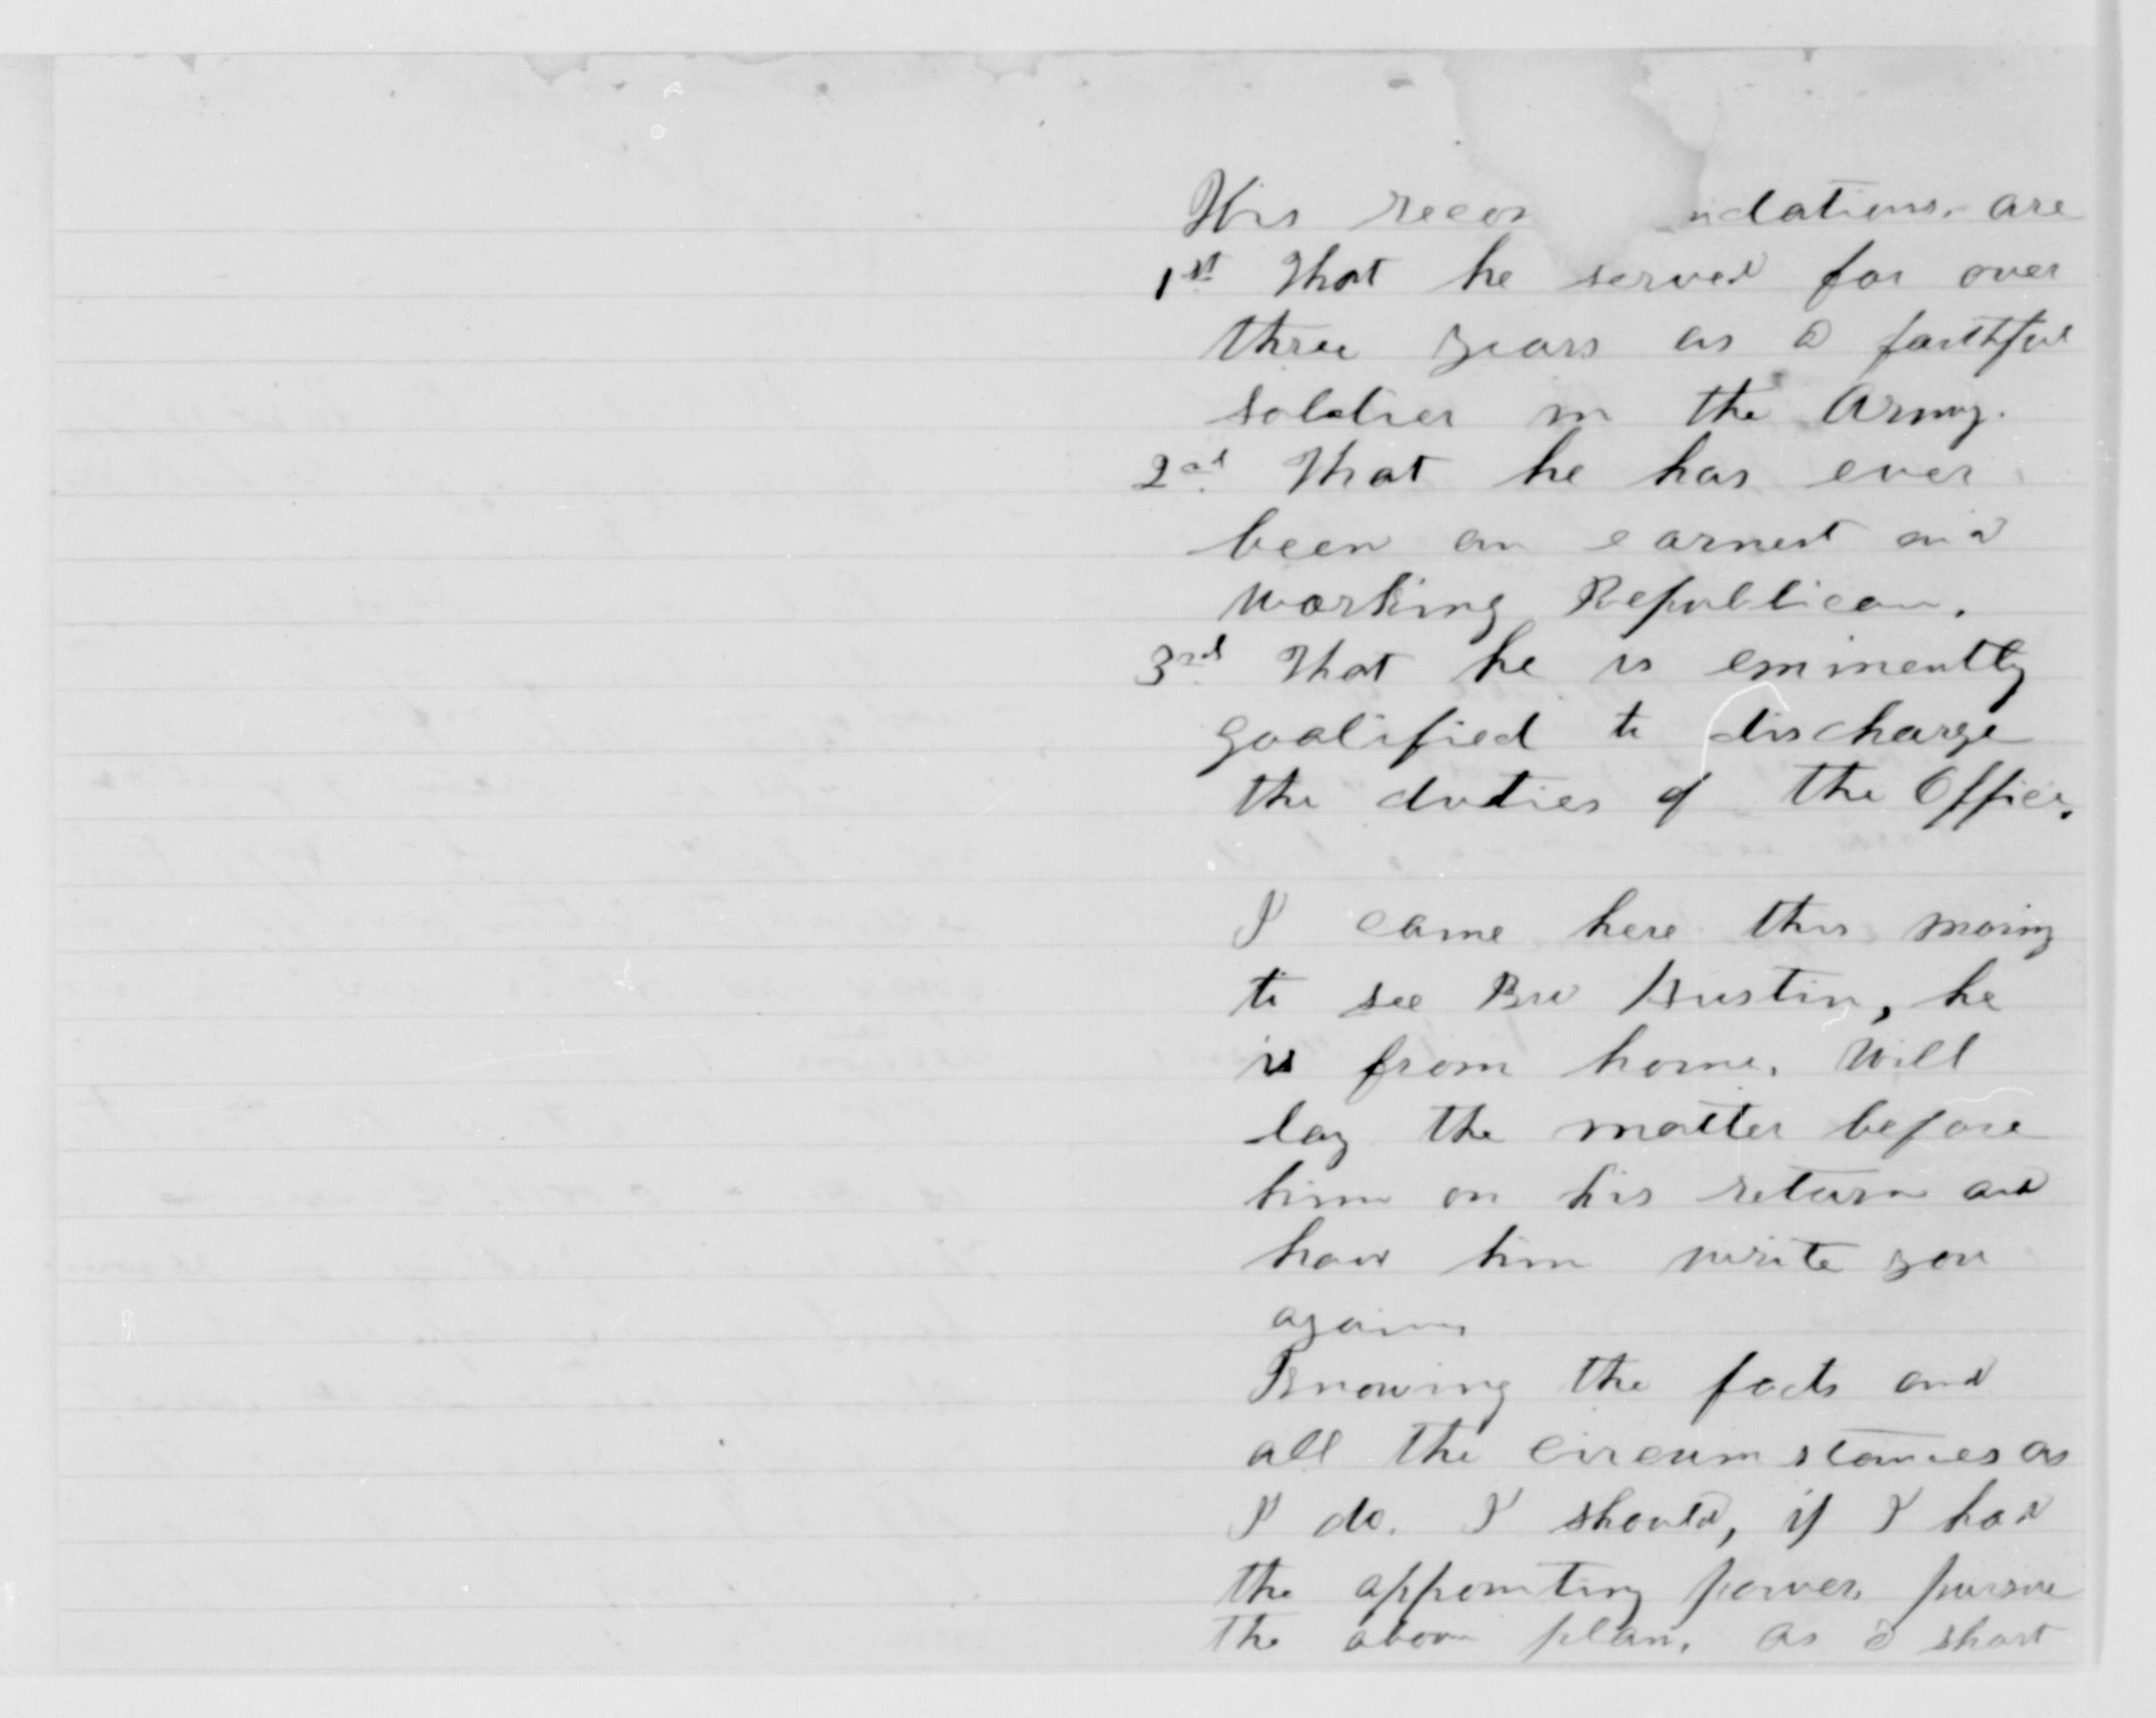 His recom ndations are
1st That he served for over
three years as a faithful
soldier in the Army.
2nd That he has ever
been an earnest and
working Republican.
3rd That he is eminently
qualified to discharge
the duties of the Office.
I came here this moing
to see Bro Austin, he
is from home. Will
lay the matter before
him on his return and
have him write you
again
Knowing the facts and
all the circumstances as
I do. I should, if I had
the appointing power, pursue
the above plan. as a short